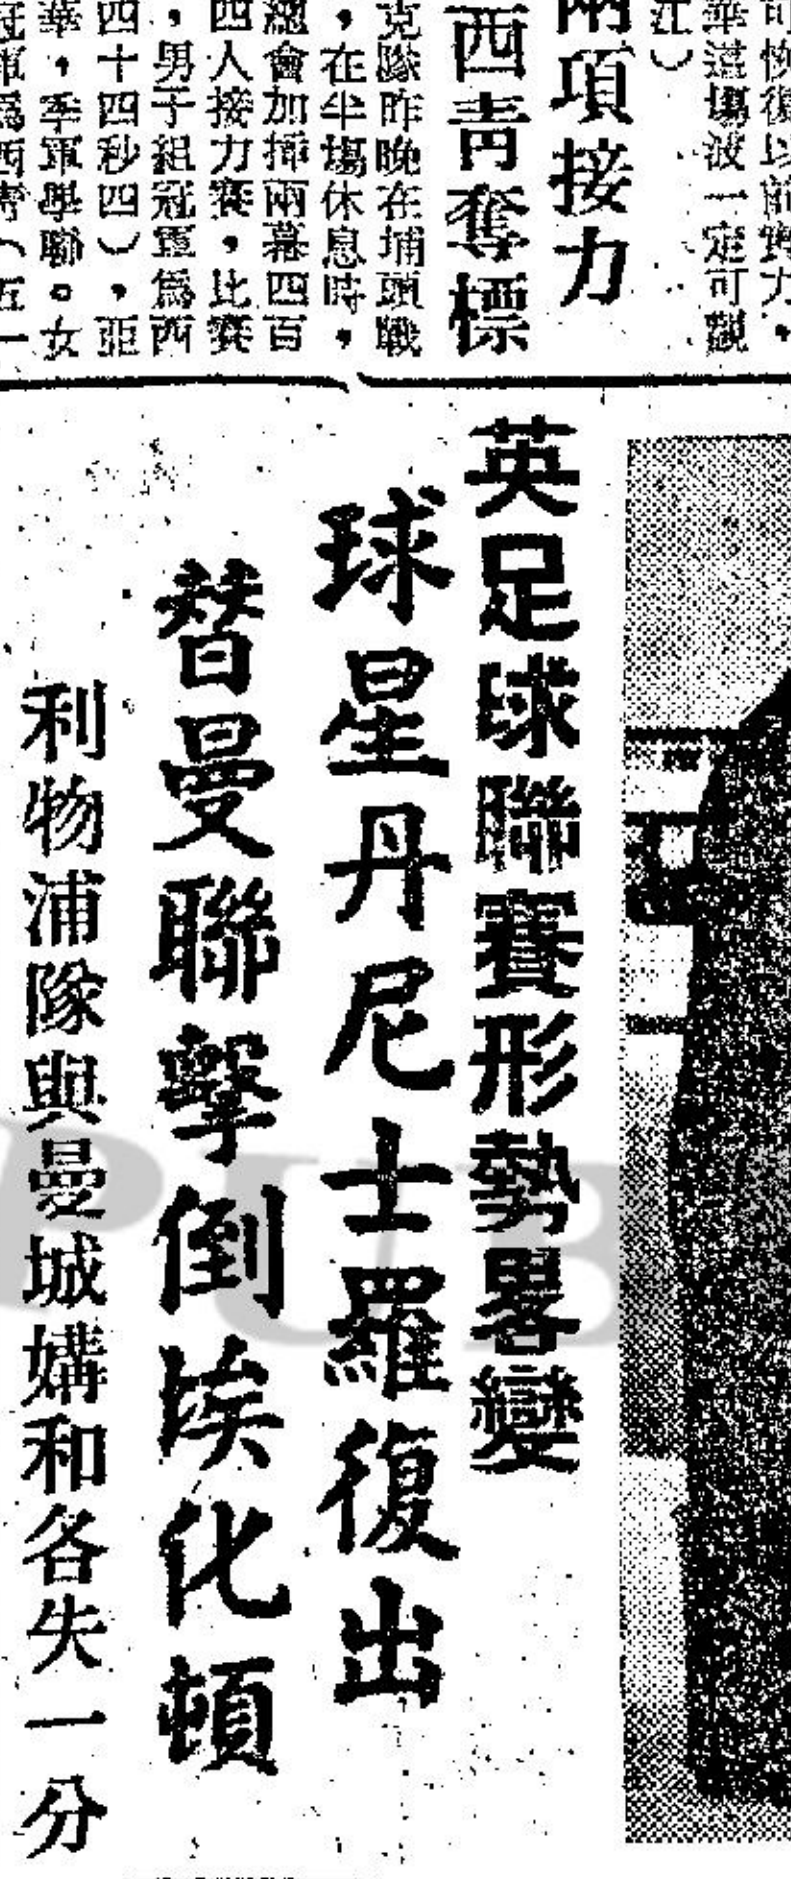 可恢復以前實力，
華這場波一定可觀
江）
兩項接力
西青奪標
克隊昨晚在埔頭戰
，在半場休息時，
總會加插兩幕四百
四人接力賽，比賽
，男子組冠軍爲西
四十四秒四），亞
華，季軍學聯。女
冠軍爲西青（五一
英足球聯賽形勢畧變
球星丹尼士羅復出
替曼聯擊倒埃化頓
利物浦隊與曼城媾和各失一分
PUB